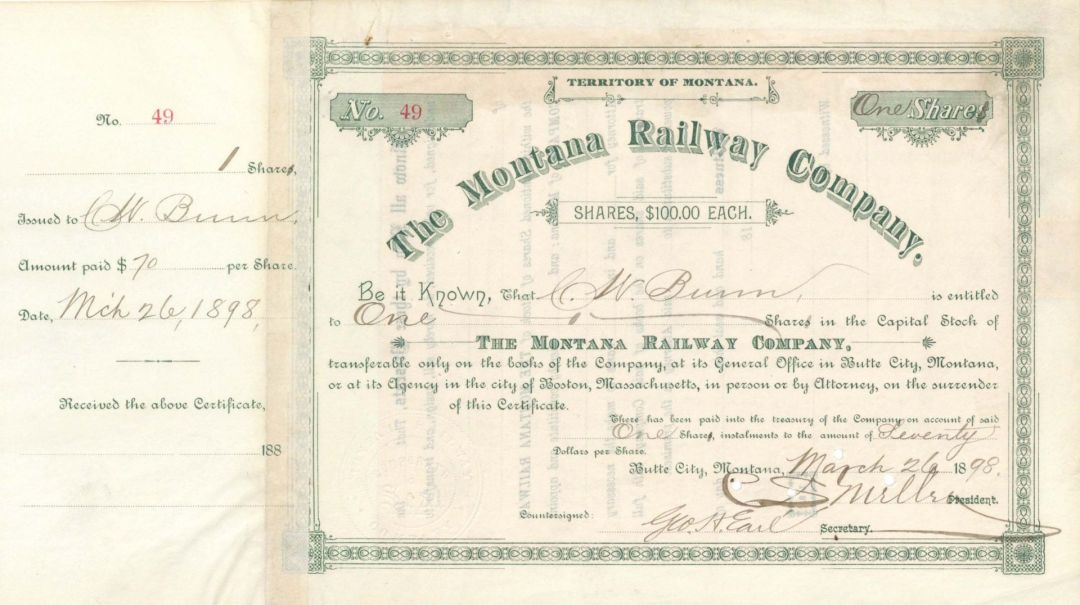 No. 49
1 Shares,
Issued to C. W. Bunn,
Amount paid $ 70 per Share.
Date, Mch 26, 1898,
Received the above Certificate,
188
TERRITORY OF MONTANA.
No. 49
One Shares
The Montana Railway Company.
SHARES, $100.00 EACH.
Be it Known, That C. W. Bunn, is entitled
to One Shares in the Capital Stock of
THE MONTANA RAILWAY COMPANY,
transferable only on the books of the Company, at its General Office in Butte City, Montana,
or at its Agency in the city of Boston, Massachusetts, in person or by Attorney, on the surrender
of this Certificate.
There has been paid into the treasury of the Company on account of said
One Shares, instalments to the amount of Seventy
Dollars per Share.
Butte City, Montana, March 26 1898.
President.
Countersigned:
Geo. H. Earl Secretary.